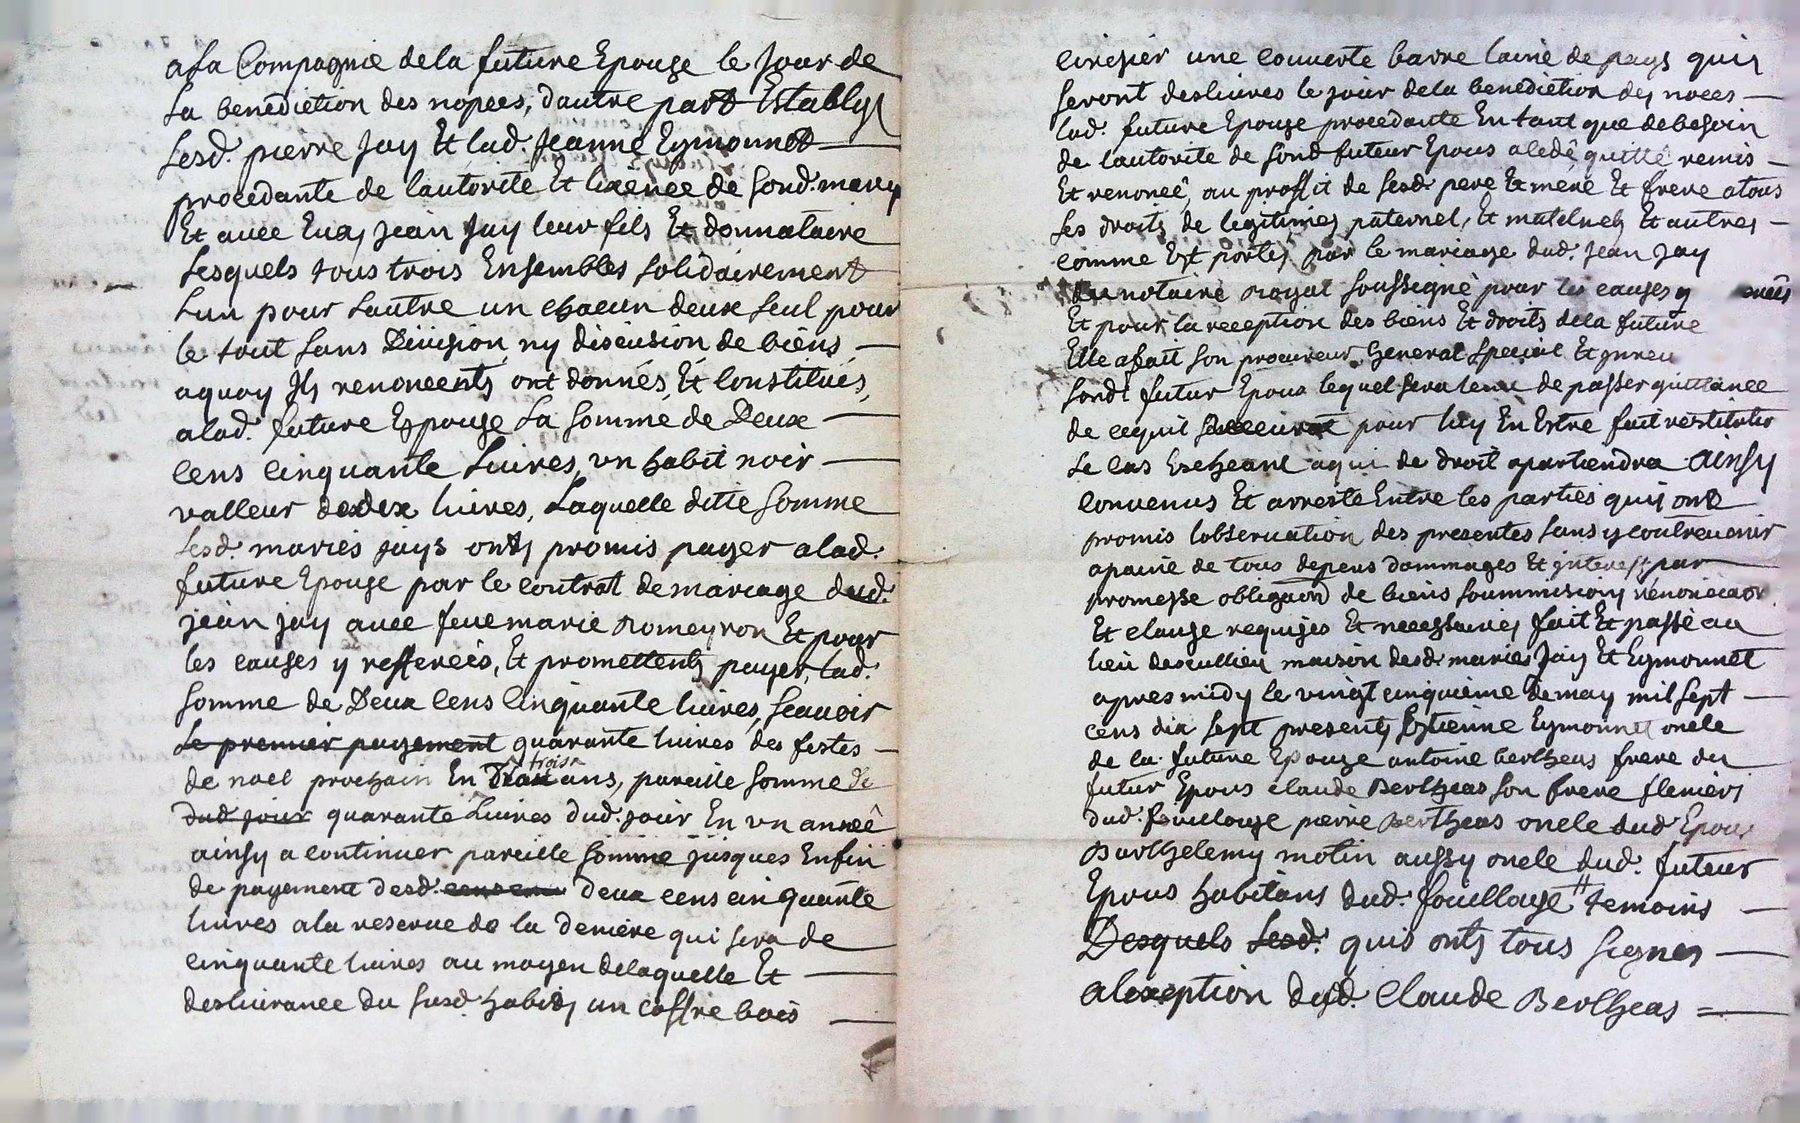 a la Compagnie dela future Epouse le Jour de
la benediction des nopces, dautre part Establys
Lesd. pierre Jay Et lad. Jeanne Eymonnet
procedante de lautorite Et lixence de sond. mary
Et avec Eux jean Jay leur fils Et donnataire
Lesquels tous trois Ensembles solidairement
Lun pour Lautre un chacun deux seul pour
le tout sans Division, ny discution de biens
aquoy Ils renoncents, ont donnés, Et Constitués,
alad. future Espouse La somme de Deux
cens cinquante Livres, un habit noir
valleur de dix livres, Laquelle ditte somme
Lesd. mariés jays onts promis payer alad.
future Epouse par le contrat de mariage dud.
jean jay avec feue marie Romeyron Et pour
les causes y refferées, Et promettents payer, lad.
somme de Deux cens Cinquante livres, Scavoir
Le premier payement quarante livres des festes
de noel prochain En trois ans, pareille somme de
dud. jour quarante Livres dud. jour En un année
ainsy a continuer pareille somme jusques Enfin
de payement desd. deux cens cinquante
livres ala reserve de la derniere qui sera de
cinquante livres au moyen delaquelle Et
deslivrance du susd. habits un coffre bois
cirisier une couverte barre laine de pays quis
seront deslivres le jour dela benediction des noces
lad. future Epouse procedante En tant que de besoin
de lautorite de sond futeur Epous a cedé quitté remis
Et renoncé, au proffit de sesd. pere Et mere Et frere a tous
ses droits de legitimes paternel, Et maternels Et autres
comme Est portés par le mariage dud. Jean Jay
du notaire Royal soussigné pour les causes y
Et pour la reception des biens Et droits dela future
Elle a fait son procureur General special Et
sond. futur Epoux lequel sera tenu de passer quittance
de cequil pour luy En Estre fait restitution
Le cas Escheant aqui de droit apartiendra ainsy
convenus Et arreste Entre les parties quis ont
promis lobservation des presentes sans y contrevenir
apaine de tous depens dommages Et interest par
promesse obligaon de biens soummisions renonciaon
Et clause requises Et necessaires fait Et passé au
lieu descullieu maison desd. mariés Jay Et Eymonnet
apres midy le vingt cinquieme de may mil sept
cens dix sept presents Estienne Eymonnet oncle
de la future Epouse antoine bertheas frere du
futur Epous claude Bertheas son frere
dud. fouillouse pierre Bertheas oncle dud Epoux
Barthelemy molin aussy oncle dud. futeur
Epous habitans dud. fouillouse temoins
Desquels Lesd. quis onts tous signes
alexeption dud. Claude Bertheas